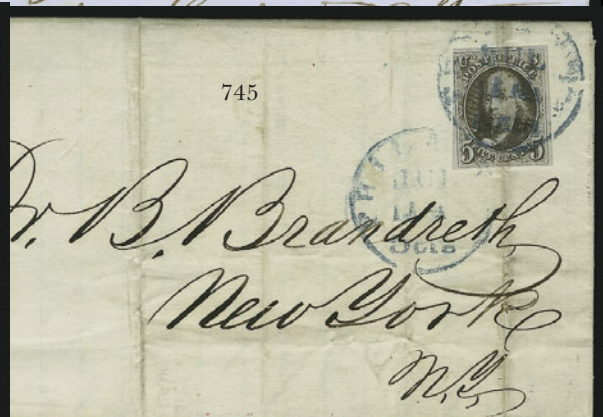 745
POST OFFICE
5 5
PHILA
JUL
5cts
Dr. B. Brandreth
New York
N.Y.